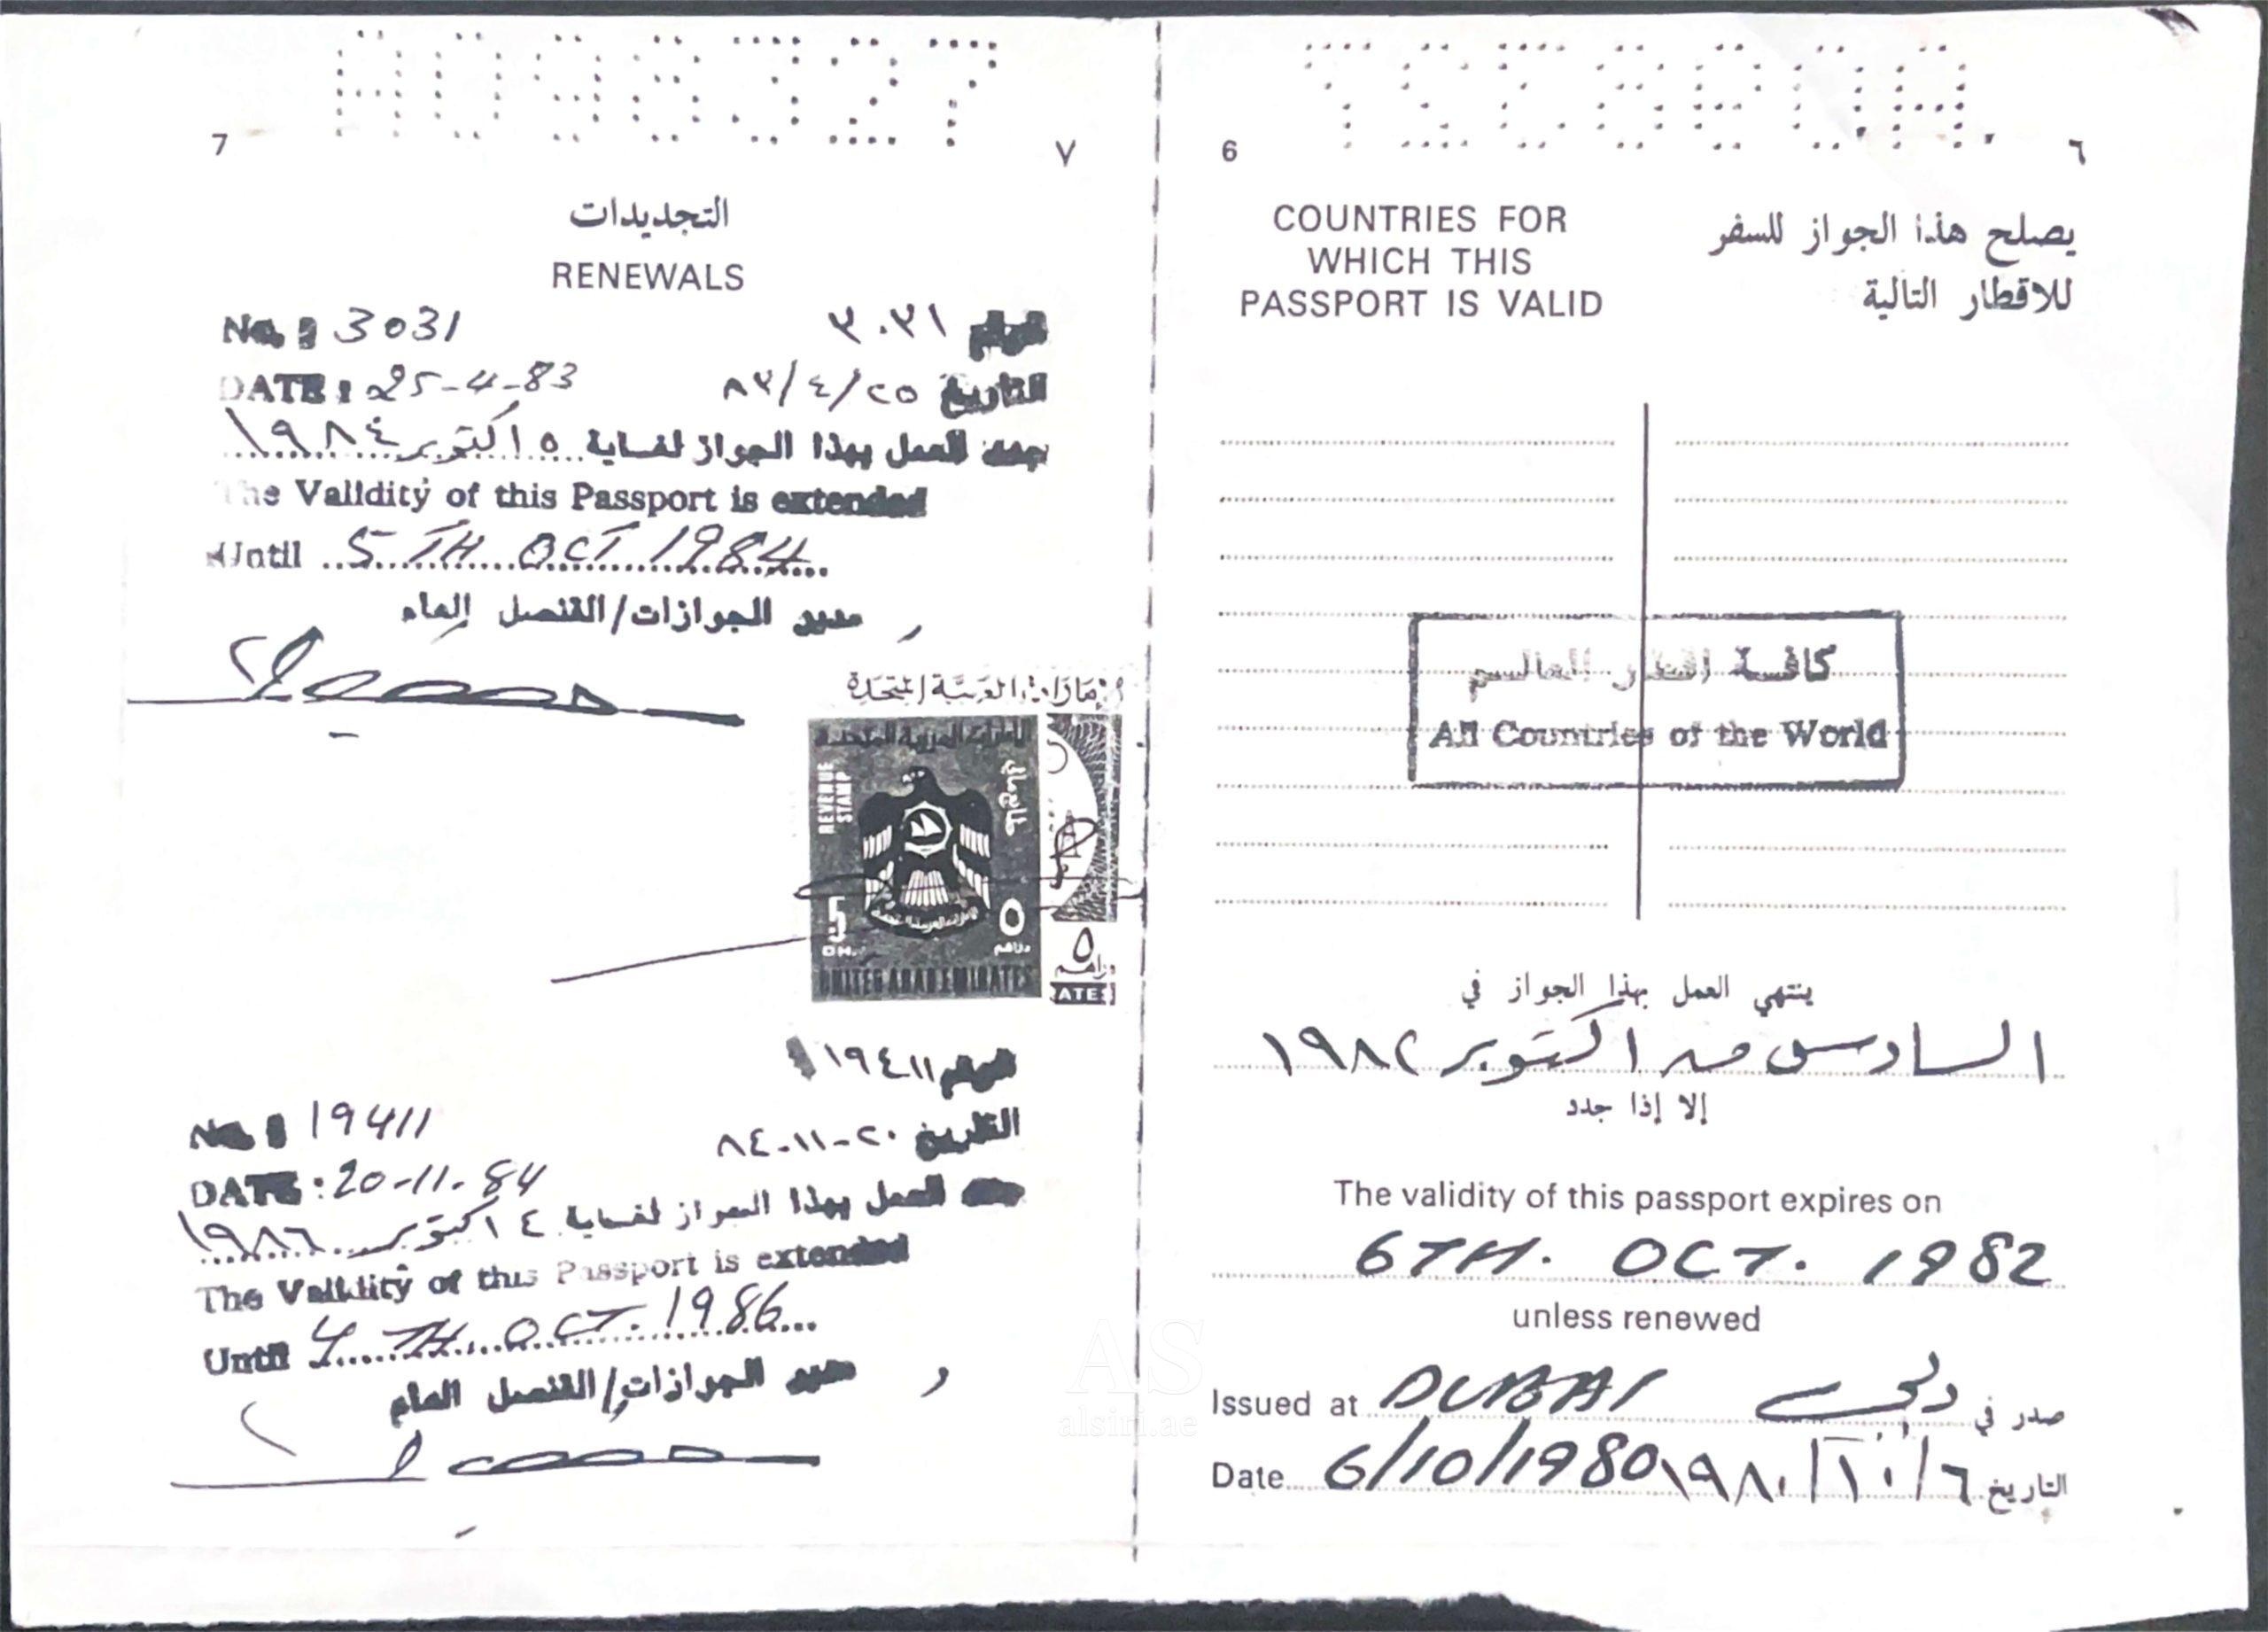 A098327
7 ٧
التجديدات
RENEWALS
No. : 3031 الرقم ٣٠٣١
DATE : 25-4-83 التاريخ ٨٣/٤/٢٥
جدد العمل بهذا الجواز لغاية ٥ اكتوبر ١٩٨٤
The Validity of this Passport is extended
Until 5 TH OCT 1984
مدير الجوازات/القنصل العام
الإمارات العربية المتحدة
الامارات العربية المتحدة
REVENUE STAMP
طابع مالي
5 ٥
DH. دراهم
UNITED ARAB EMIRATES
٥
ATES
الرقم ١٩٤١١
No. : 19411
التاريخ ٢٠-١١-٨٤
DATE : 20-11-84
جدد العمل بهذا الجواز لغاية ٤ اكتوبر ١٩٨٦
The Validity of this Passport is extended
Until 4 TH OCT. 1986
مدير الجوازات/القنصل العام
A098327
6 ٦
يصلح هذا الجواز للسفر
للاقطار التالية
COUNTRIES FOR
WHICH THIS
PASSPORT IS VALID
كافة اقطار العالم
All Countries of the World
ينتهي العمل بهذا الجواز في
السادس من اكتوبر ١٩٨٢
إلا إذا جدد
The validity of this passport expires on
6TH. OCT. 1982
unless renewed
Issued at DUBAI صدر في دبي
Date 6/10/1980 التاريخ ٦/١٠/١٩٨٠
AS
alsiri.ae